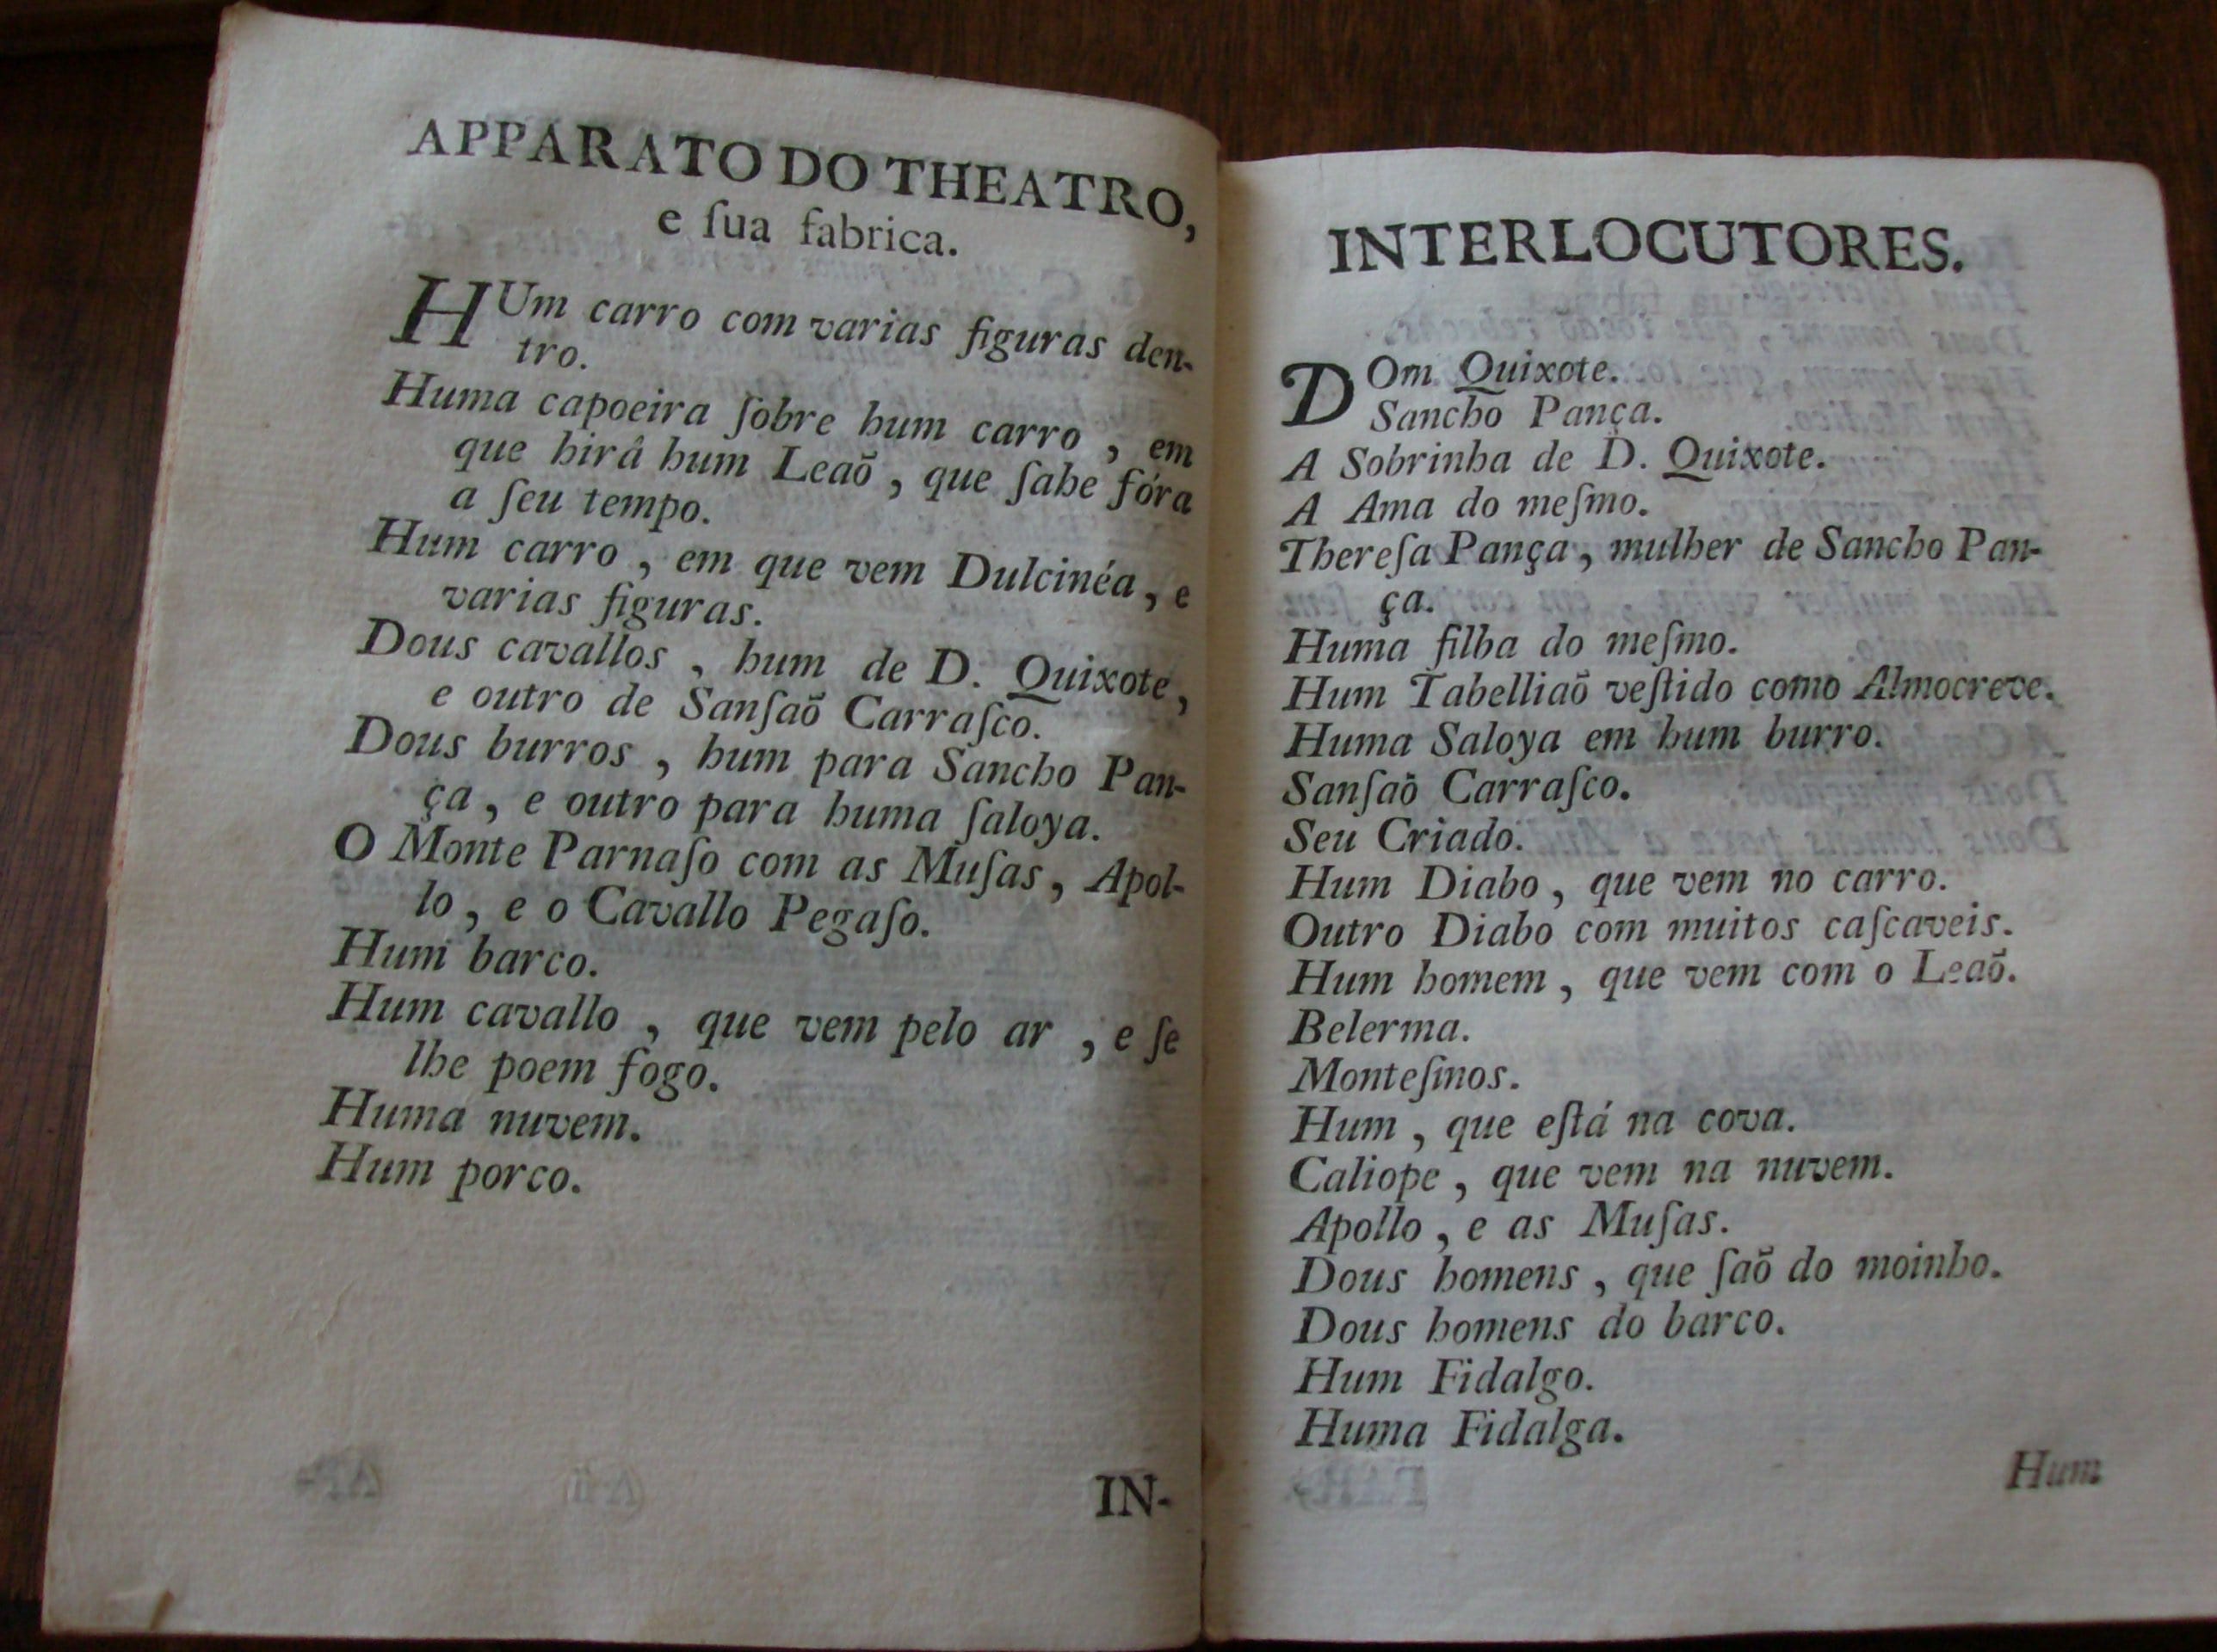 APPARATO DO THEATRO,
e ſua fabrica.
HUm carro com varias figuras den-
tro.
Huma capoeira ſobre hum carro , em
que hirâ hum Leaõ , que ſahe fóra
a ſeu tempo.
Hum carro , em que vem Dulcinéa , e
varias figuras.
Dous cavallos , hum de D. Quixote ,
e outro de Sanſaõ Carraſco.
Dous burros , hum para Sancho Pan-
ça , e outro para huma ſaloya.
O Monte Parnaſo com as Muſas , Apol-
lo , e o Cavallo Pegaſo.
Hum barco.
Hum cavallo , que vem pelo ar , e ſe
lhe poem fogo.
Huma nuvem.
Hum porco.
IN-
INTERLOCUTORES.
DOm Quixote.
Sancho Pança.
A Sobrinha de D. Quixote.
A Ama do meſmo.
Thereſa Pança , mulher de Sancho Pan-
ça.
Huma filha do meſmo.
Hum Tabelliaõ veſtido como Almocreve.
Huma Saloya em hum burro.
Sanſaõ Carraſco.
Seu Criado.
Hum Diabo , que vem no carro.
Outro Diabo com muitos caſcaveis.
Hum homem , que vem com o Leaõ.
Belerma.
Monteſinos.
Hum , que eſtá na cova.
Caliope , que vem na nuvem.
Apollo , e as Muſas.
Dous homens , que ſaõ do moinho.
Dous homens do barco.
Hum Fidalgo.
Huma Fidalga.
Hum